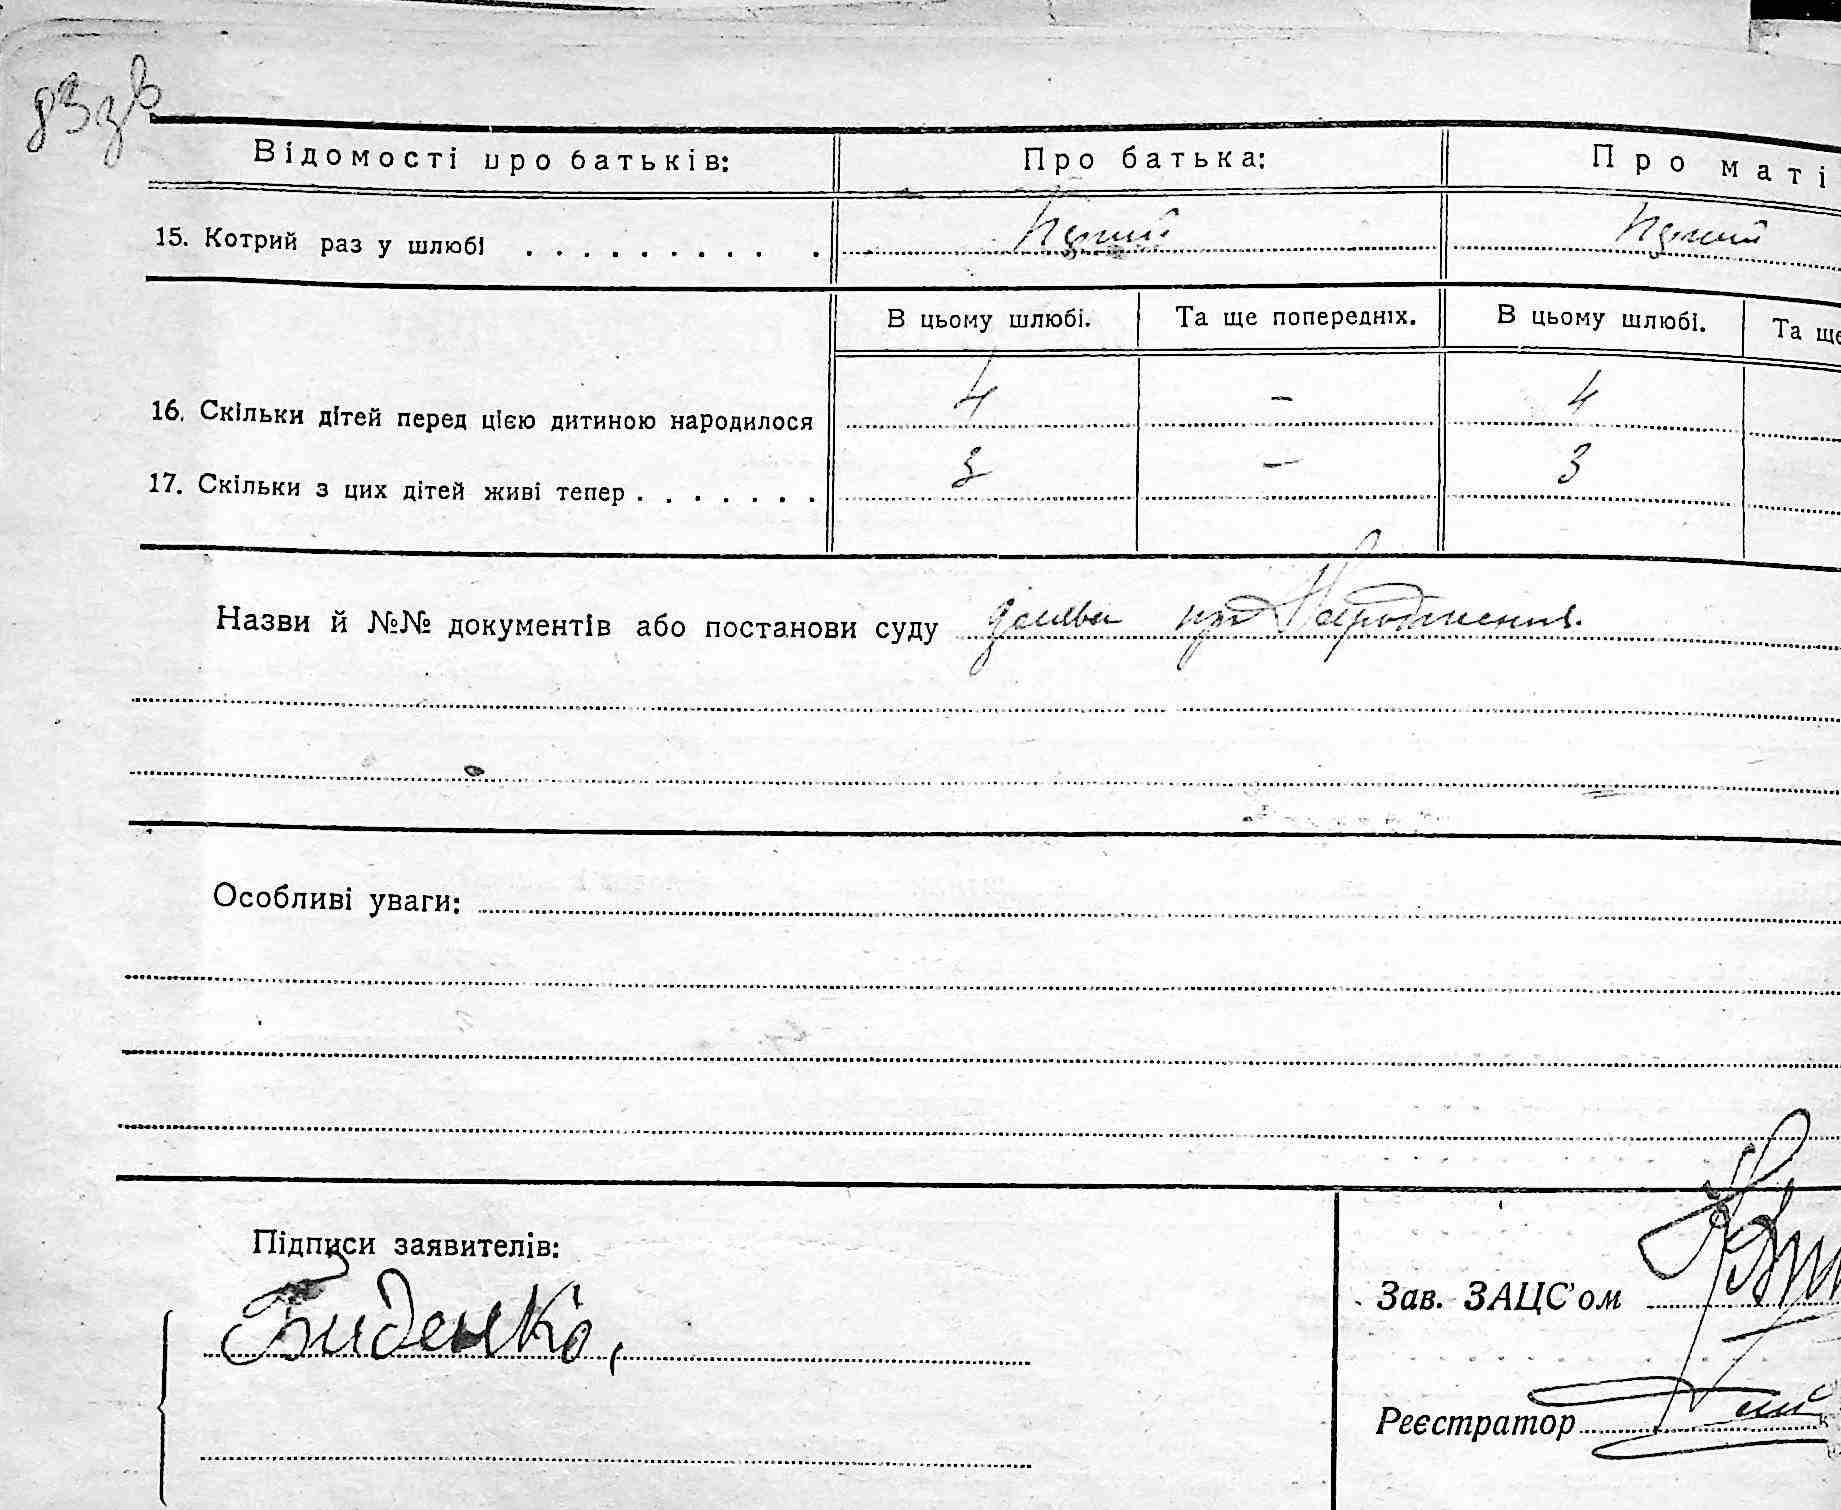 83зв
Відомості про батьків: Про батька: Про маті
15. Котрий раз у шлюбі . . . . . . . . . . . Перший Перший
В цьому шлюбі. Та ще попередніх. В цьому шлюбі. Та ще
16. Скільки дітей перед цією дитиною народилося 4 - 4
17. Скільки з цих дітей живі тепер . . . . . . . 3 - 3
Назви й №№ документів або постанови суду Заява про Народження.
Особливі уваги:
Підписи заявителів:
Биденко,
Зав. ЗАЦС'ом
Реєстратор